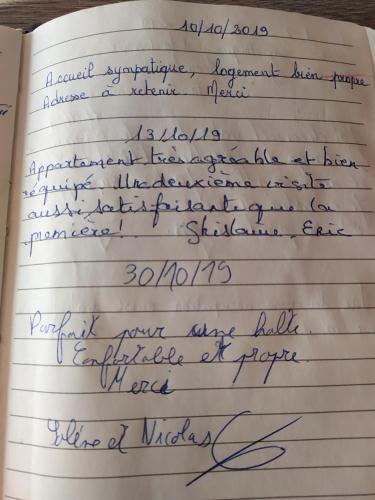 10/10/2019
Accueil sympatique, logement bien propre
Adresse à retenir. Merci
13/10/19
Appartement très agréable et bien
équipé. Une deuxième visite
aussi satisfaisante que la
première! Ghislaine, Eric
30/10/19
Parfait pour une halte.
Confortable et propre.
Merci
Solène et Nicolas